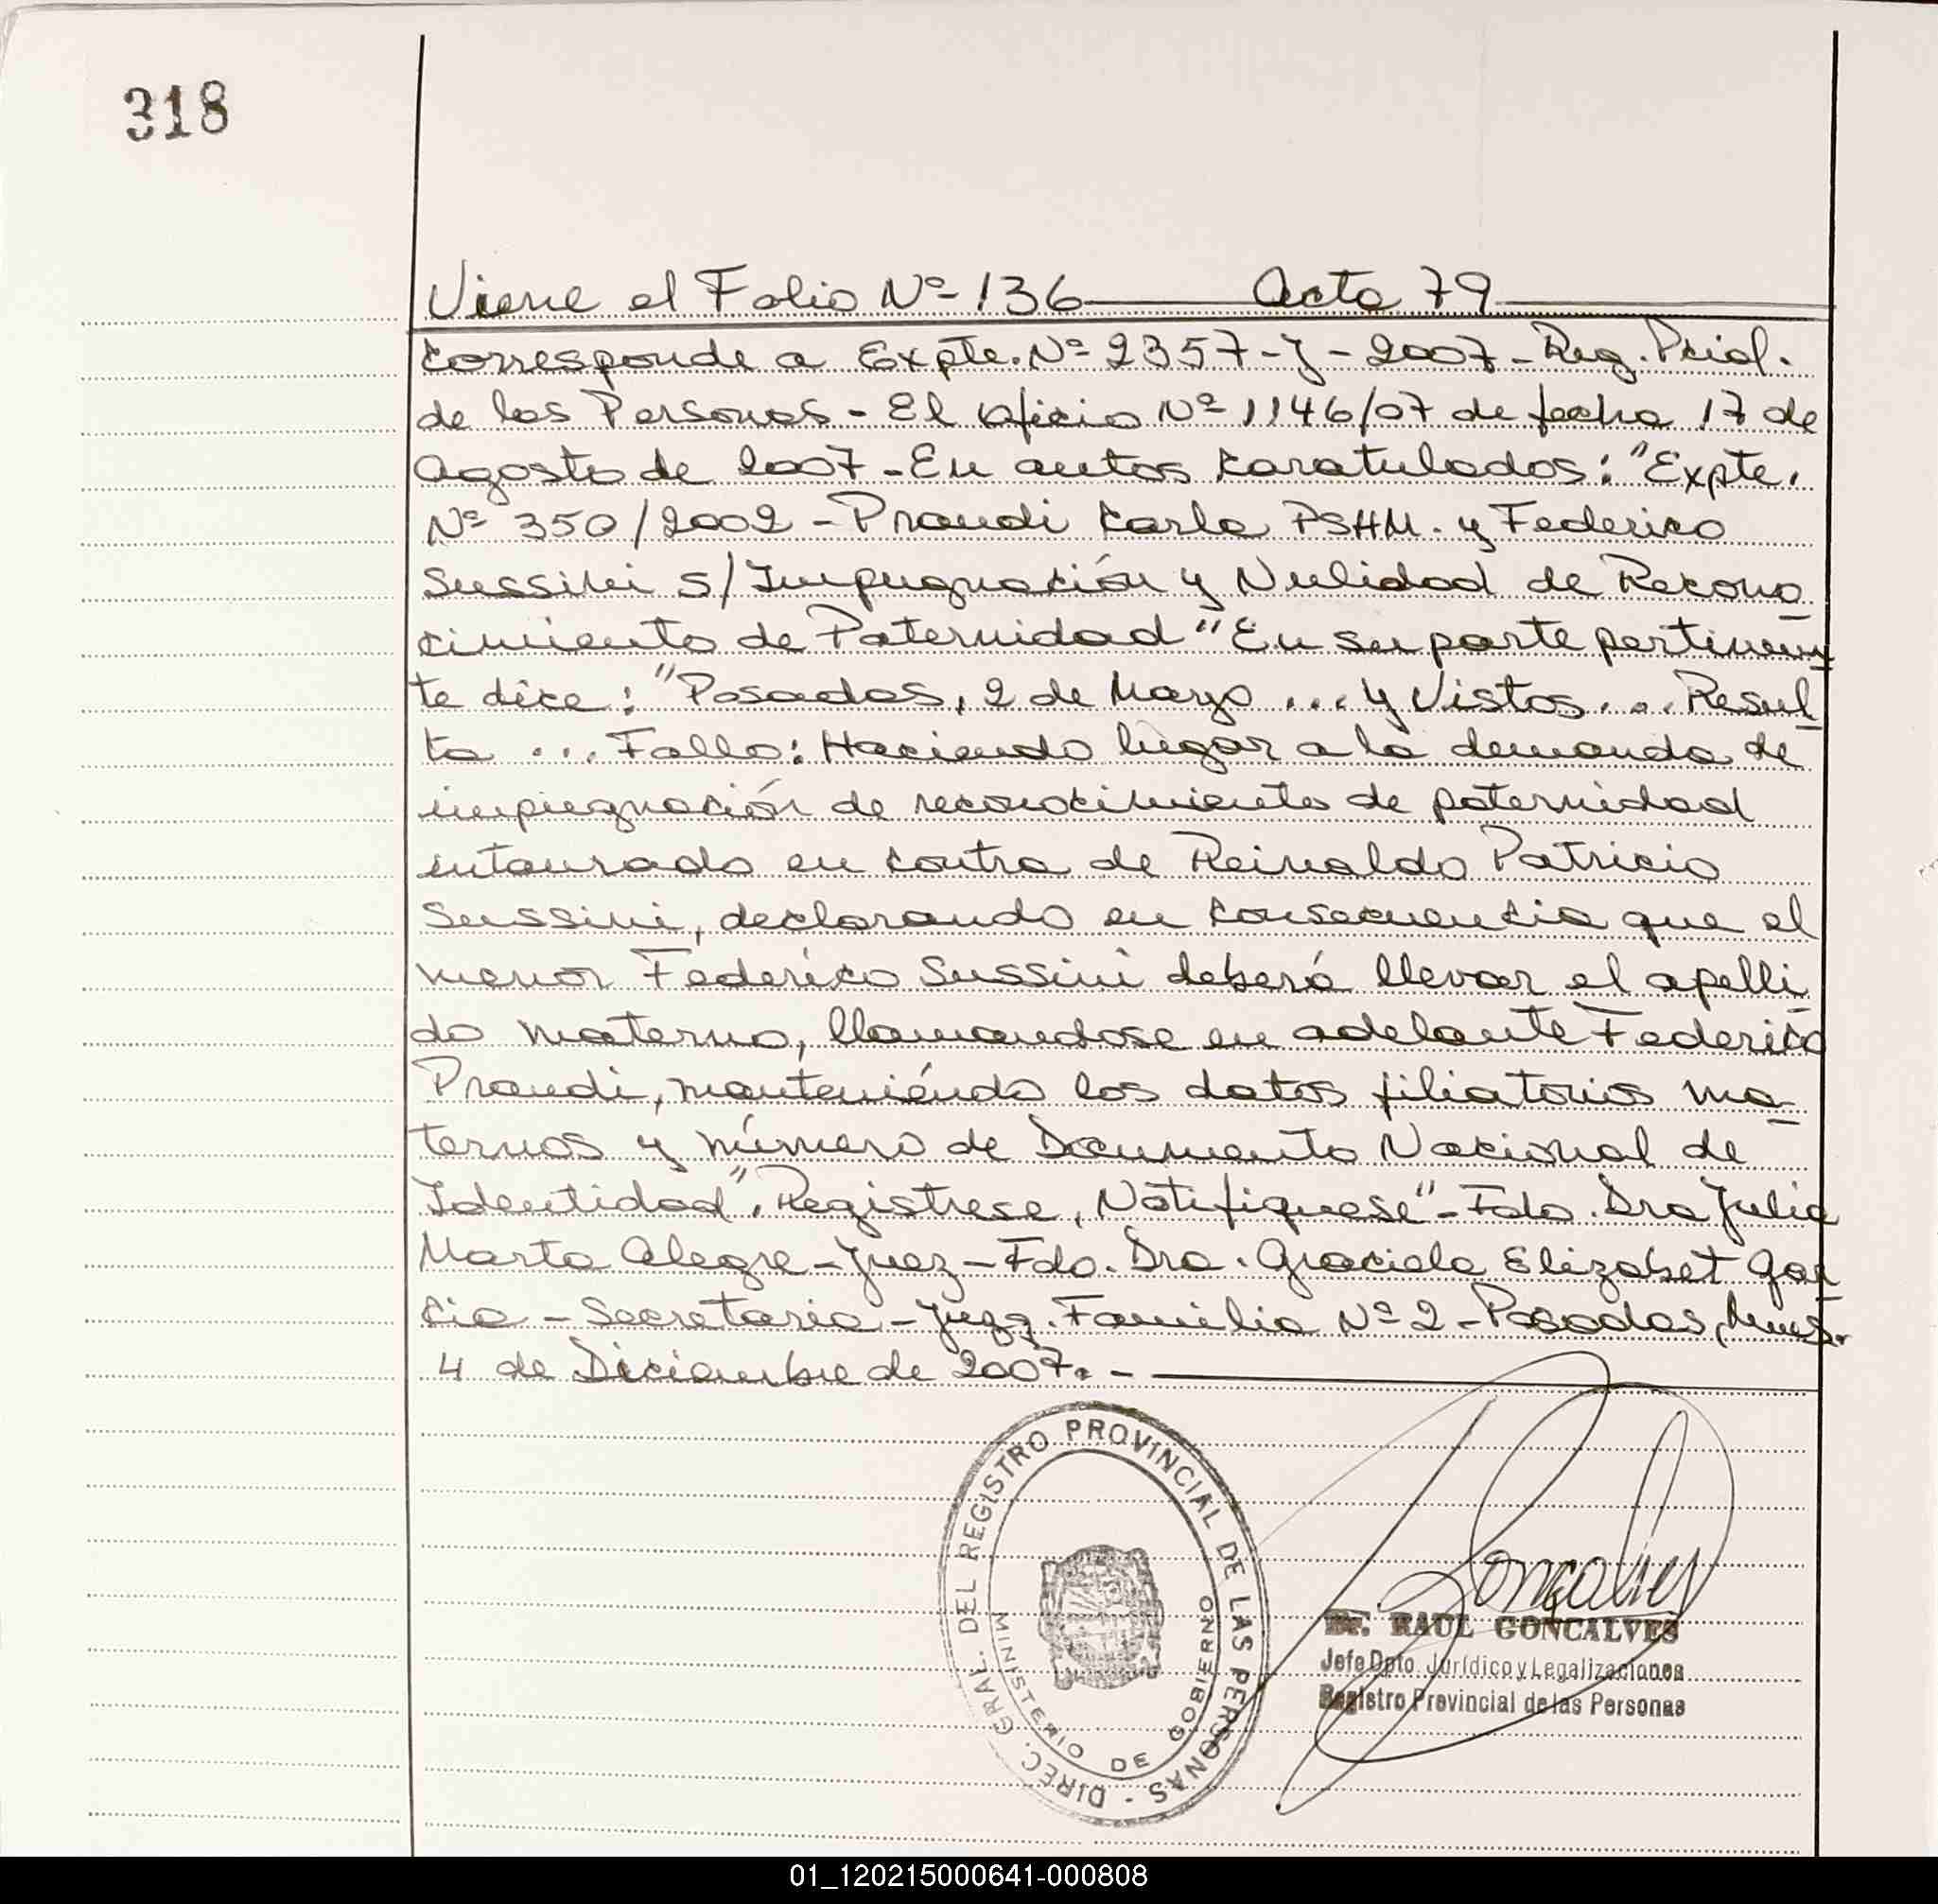 318
Viene el Folio Nº 136 Acta 79
corresponde a Expte. Nº 2357-J-2007-Reg. Pcial.
de las Personas - El oficio Nº 1146/07 de fecha 17 de
Agosto de 2007 - En autos caratulados: "Expte.
Nº 350/2002 - Prandi Carla PSHM. y Federico
Sussini S/Impugnación y Nulidad de Recono
cimiento de Paternidad" En su parte pertinen
te dice: "Posadas, 2 de Mayo ... y Vistos ... Resul
ta ... Fallo: Haciendo lugar a la demanda de
impugnación de reconocimiento de paternidad
entaurado en contra de Reinaldo Patricio
Sussini, declarando en consecuencia que el
menor Federico Sussini deberá llevar el apelli
do materno, llamandose en adelante Federico
Prandi, manteniéndo los datos filiatorios ma
ternos y número de Documento Nacional de
Identidad". Registrese, Notifiquese" - Fdo. Dra Julia
Marta Alegre - Juez - Fdo. Dra. Graciela Elizabet Gar
cia - Secretaria - Juzg. Familia Nº 2 - Posadas, Mnes.
4 de Diciembre de 2007. -
DIREC. GRAL. DEL REGISTRO PROVINCIAL DE LAS PERSONAS -
MINISTERIO DE GOBIERNO
Goncalves
Dr. RAUL GONCALVES
Jefe Dpto. Jurídico y Legalizaciones
Registro Provincial de las Personas
01_120215000641-000808